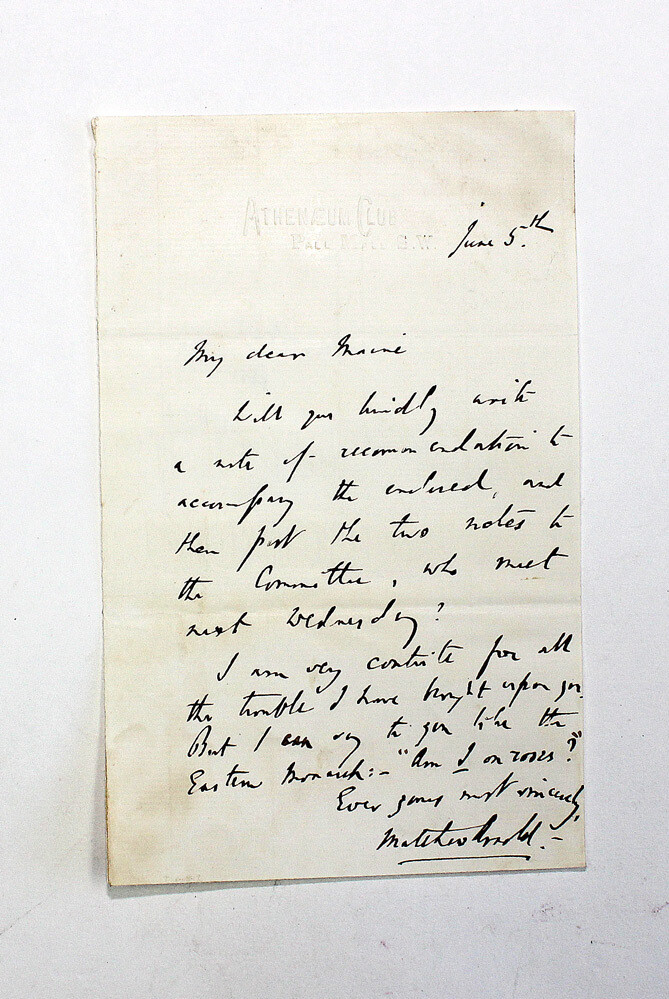 ATHENÆUM CLUB
PALL MALL S.W.
June 5.th
My dear Maine
Will you kindly write
a note of recommendation to
accompany the enclosed, and
then post the two notes to
the Committee, who meet
next Wednesday?
I am very contrite for all
the trouble I have brought upon you.
But I can say to you like the
Eastern Monarch:- "Am I on roses?"
Ever yours most sincerely,
Matthew Arnold.-